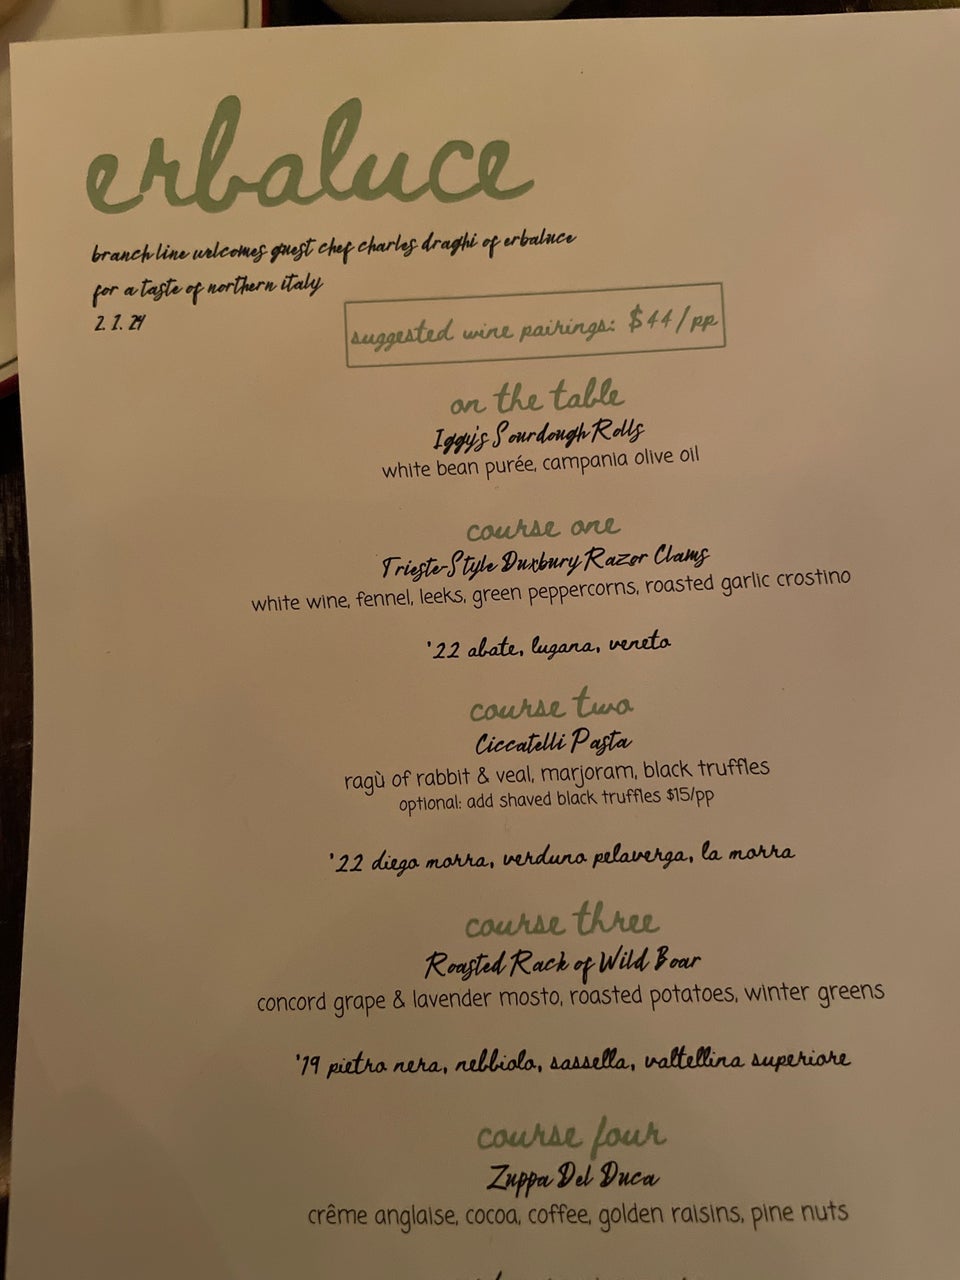 erbaluce
branch line welcomes guest chef charles draghi of erbaluce
for a taste of northern italy
2. 1. 24
suggested wine pairings: $44/pp
on the table
Iggy's Sourdough Rolls
white bean purée, campania olive oil
course one
Trieste-Style Duxbury Razor Clams
white wine, fennel, leeks, green peppercorns, roasted garlic crostino
'22 abate, lugana, veneto
course two
Ciccatelli Pasta
ragù of rabbit & veal, marjoram, black truffles
optional: add shaved black truffles $15/pp
'22 diego morra, verduno pelaverga, la morra
course three
Roasted Rack of Wild Boar
concord grape & lavender mosto, roasted potatoes, winter greens
'19 pietro nera, nebbiolo, sassella, valtellina superiore
course four
Zuppa Del Duca
crême anglaise, cocoa, coffee, golden raisins, pine nuts